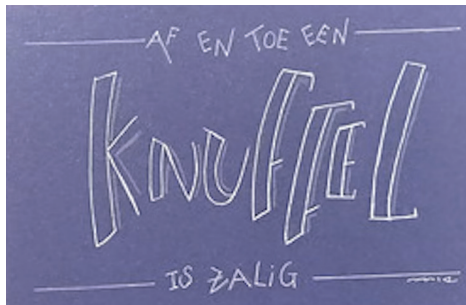 AF EN TOE EEN
KNUFFEL
IS ZALIG